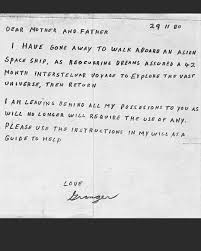 29 11 80
DEAR MOTHER AND FATHER
I HAVE GONE AWAY TO WALK ABOARD AN ALIEN
SPACE SHIP, AS REOCURRING DREAMS ASSURED A 42
MONTH INTERSTELLAR VOYAGE TO EXPLORE THE VAST
UNIVERSE, THEN RETURN
I AM LEAVING BEHIND ALL MY POSSESIONS TO YOU AS
WILL NO LONGER WILL REQUIRE THE USE OF ANY.
PLEASE USE THE INSTRUCTIONS IN MY WILL AS A
GUIDE TO HELP
LOVE
Granger